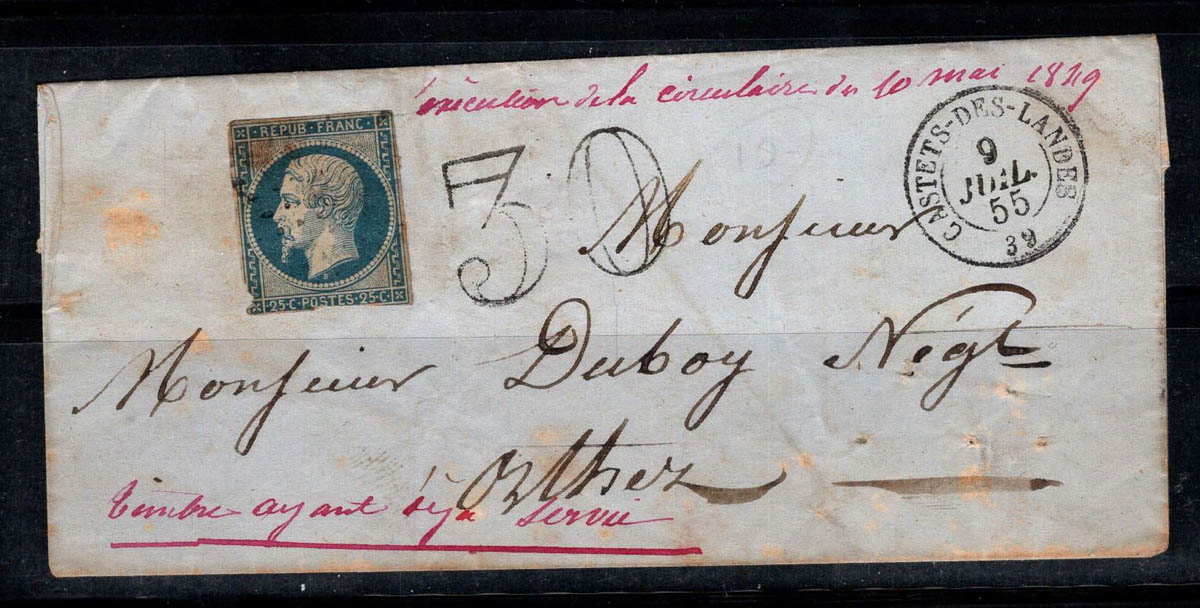 Exécution de la circulaire du 10 mai 1849
REPUB · FRANC
25 · C · POSTES · 25 · C
30
CASTETS-DES-LANDES
9
JUIL.
55
39
Monsieur
Monsieur Duboy Négt
Orthez
timbre ayant déja servie